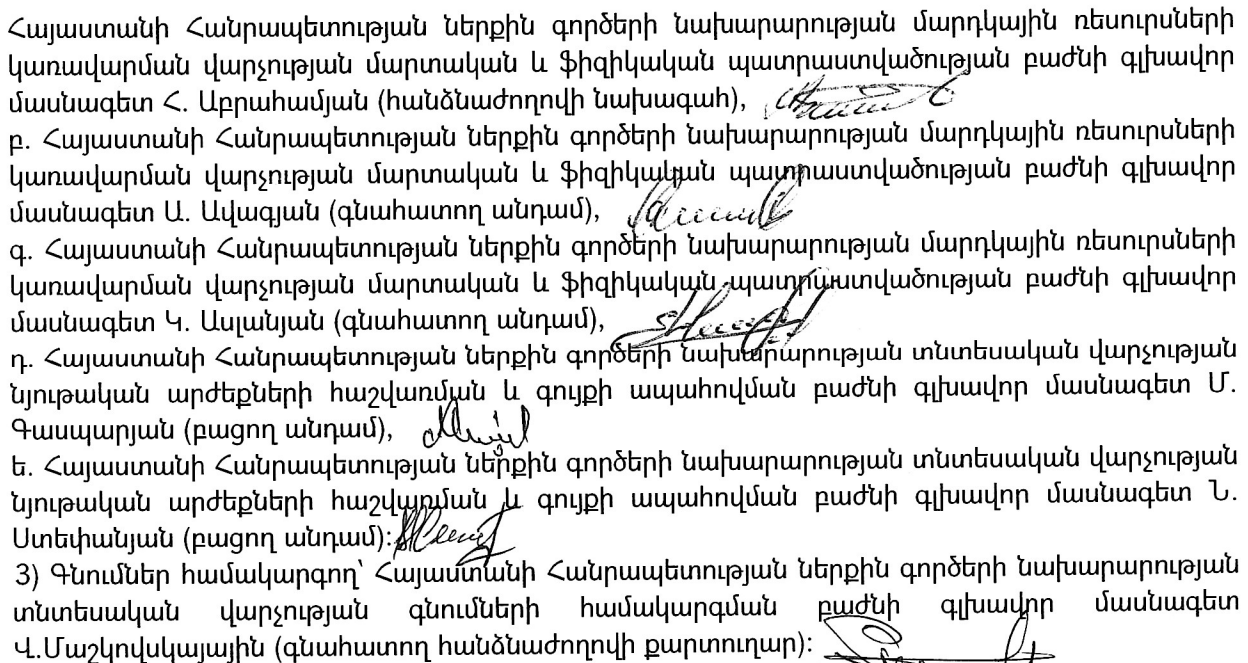 Հայաստանի Հանրապետության ներքին գործերի նախարարության մարդկային ռեսուրսների
կառավարման վարչության մարտական և ֆիզիկական պատրաստվածության բաժնի գլխավոր
մասնագետ Հ. Աբրահամյան (հանձնաժողովի նախագահ),
բ. Հայաստանի Հանրապետության ներքին գործերի նախարարության մարդկային ռեսուրսների
կառավարման վարչության մարտական և ֆիզիկական պատրաստվածության բաժնի գլխավոր
մասնագետ Ա. Ավագյան (գնահատող անդամ),
գ. Հայաստանի Հանրապետության ներքին գործերի նախարարության մարդկային ռեսուրսների
կառավարման վարչության մարտական և ֆիզիկական պատրաստվածության բաժնի գլխավոր
մասնագետ Կ. Ասլանյան (գնահատող անդամ),
դ. Հայաստանի Հանրապետության ներքին գործերի նախարարության տնտեսական վարչության
նյութական արժեքների հաշվառման և գույքի ապահովման բաժնի գլխավոր մասնագետ Մ.
Գասպարյան (բացող անդամ),
ե. Հայաստանի Հանրապետության ներքին գործերի նախարարության տնտեսական վարչության
նյութական արժեքների հաշվառման և գույքի ապահովման բաժնի գլխավոր մասնագետ Ն.
Ստեփանյան (բացող անդամ):
3) Գնումներ համակարգող՝ Հայաստանի Հանրապետության ներքին գործերի նախարարության
տնտեսական վարչության գնումների համակարգման բաժնի գլխավոր մասնագետ
Վ.Մաշկովսկայային (գնահատող հանձնաժողովի քարտուղար):